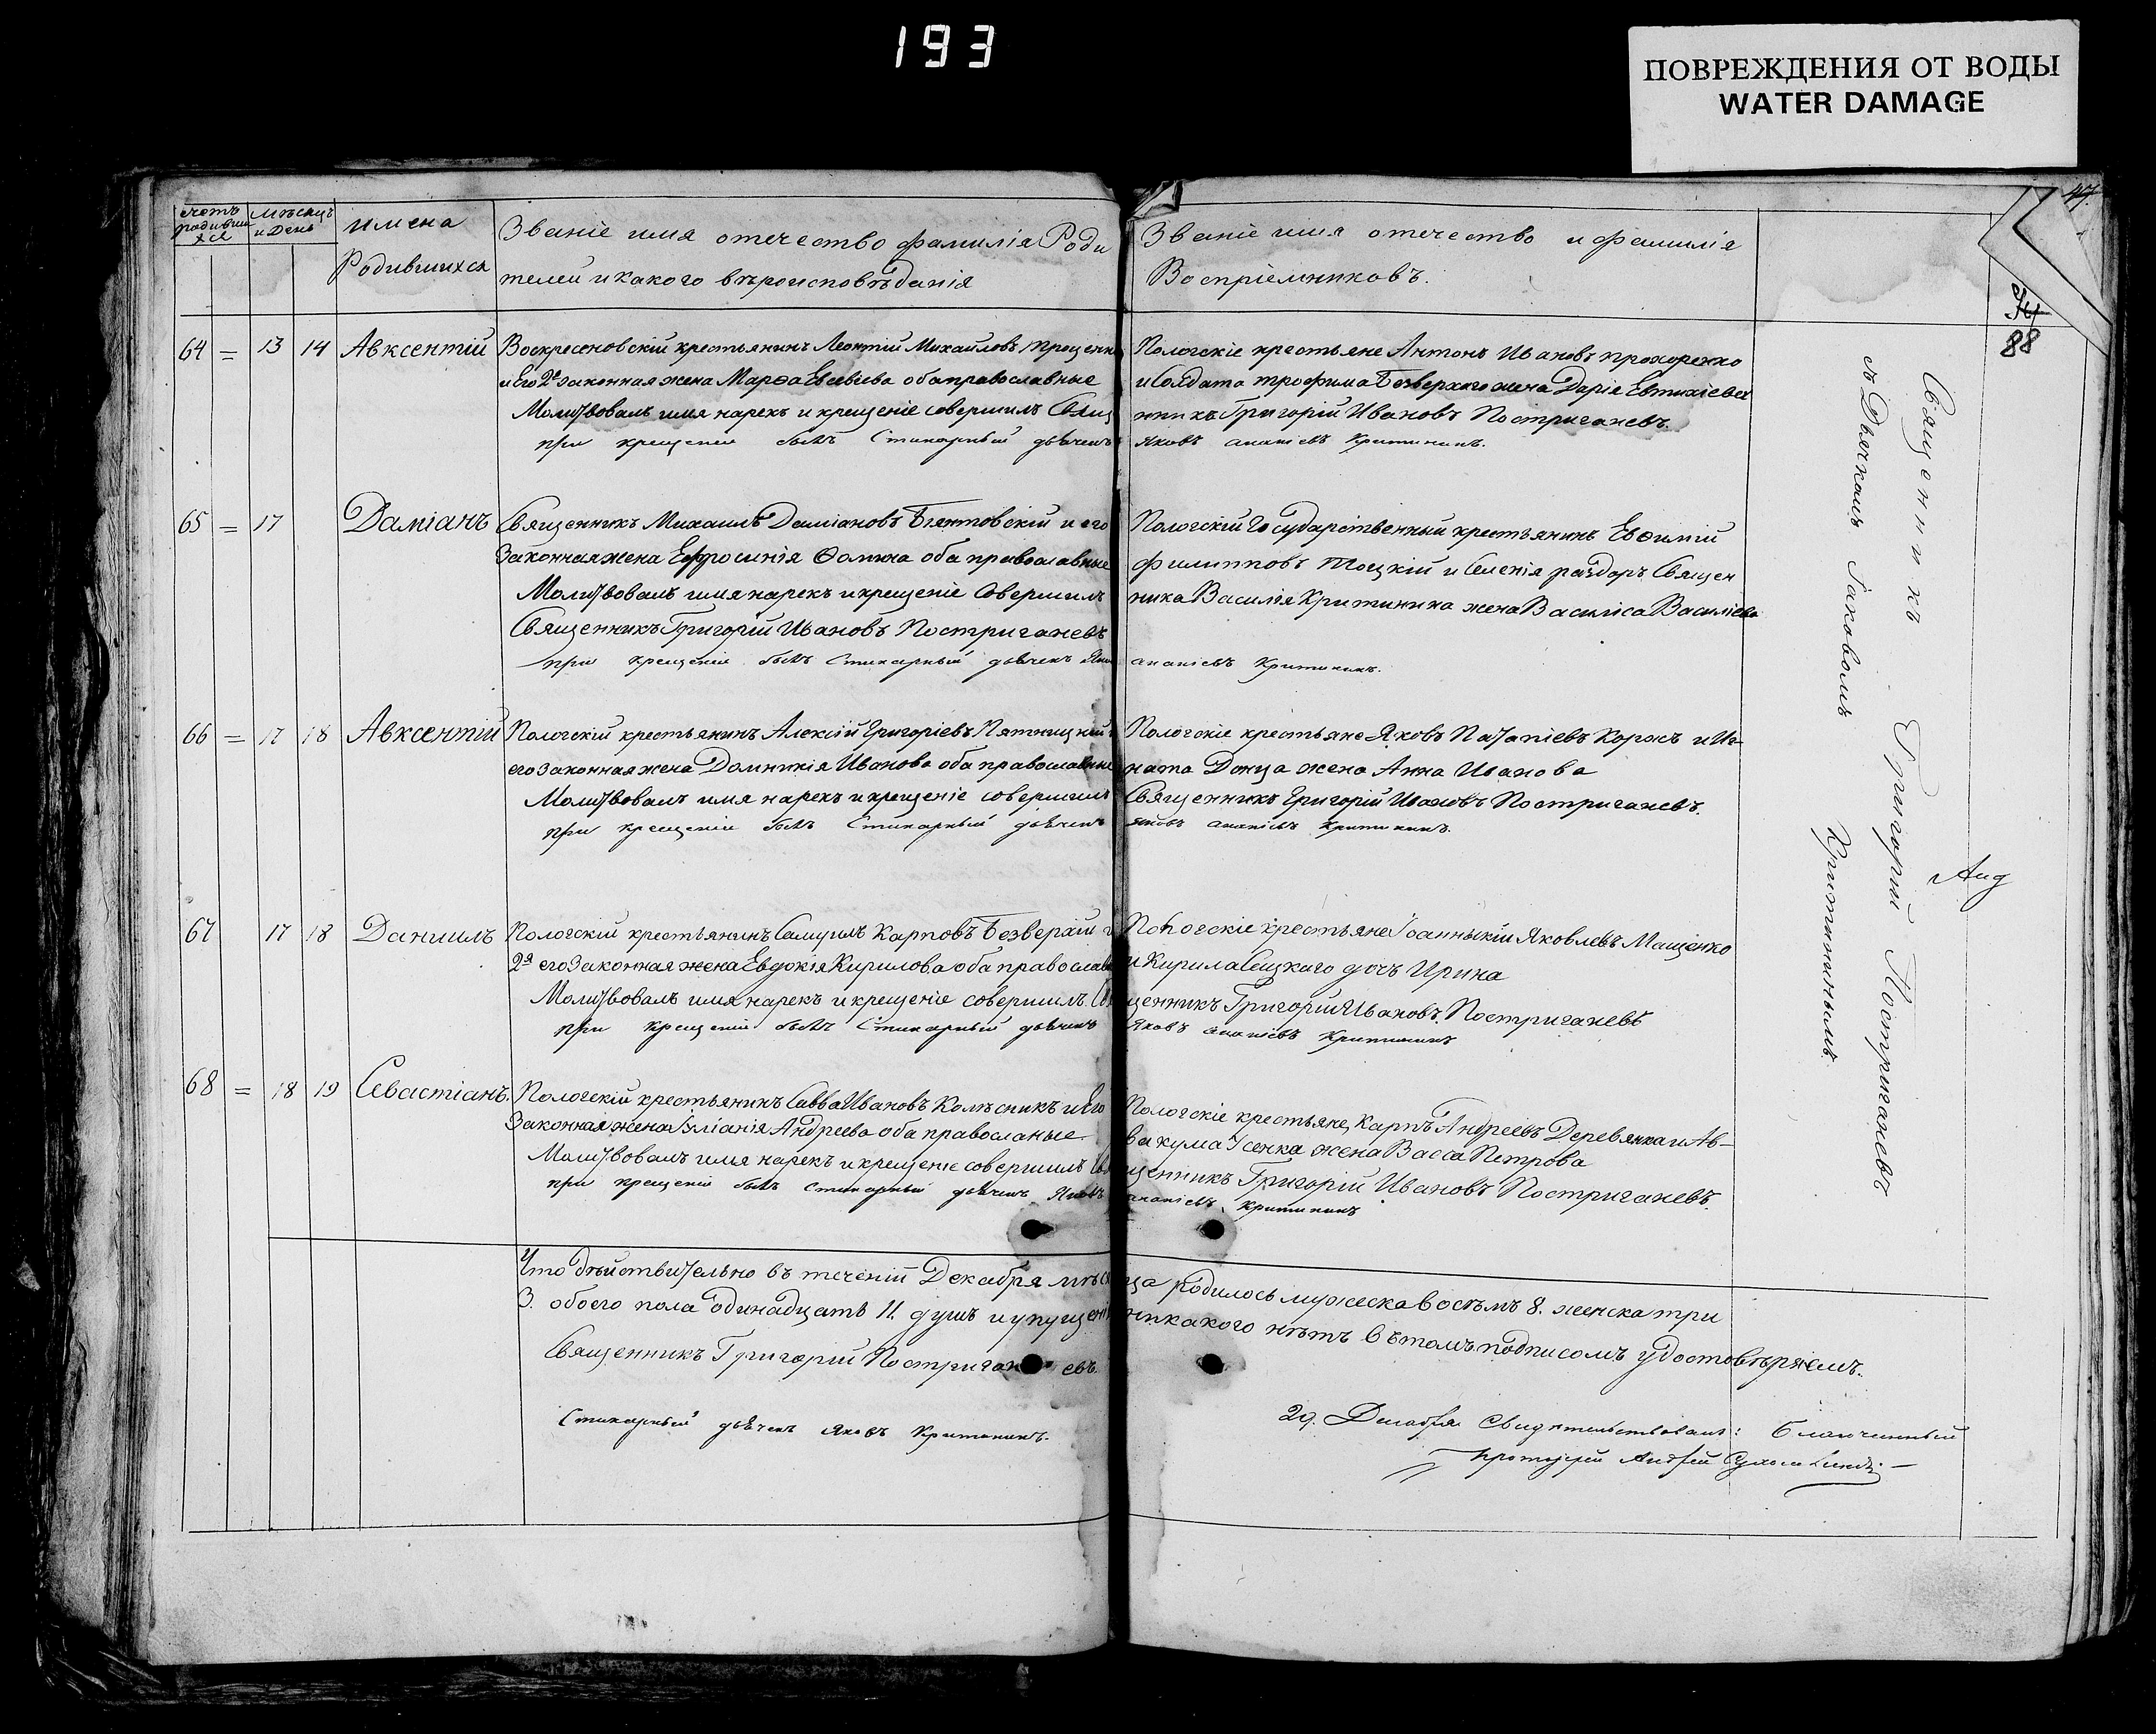 193
ПОВРЕЖДЕНИЯ ОТ ВОДЫ
WATER DAMAGE
счетъ родивших ся
мѣсяцъ и день
имена Родившихся
Званіе имя отечество фамилія Роди
телей и какого вѣроисповѣданія
Званіе имя отечество и фамилія
Воспріемниковъ.
88
64 = 13 14 Авксентій
Воскресеновскій крестьянинъ Леонтій Михайловъ Проценк
и Его 2я законная жена Марѳа Евсевіева оба православные
Молитвовалъ имя нарекъ и крещеніе совершилъ Свящ
при крещеніи былъ Стихарный дьячекъ
Пологскіе крестьяне Антонъ Ивановъ Прохоренко
и Солдата Трофима Безверхаго жена Дарія Евтихіева
нникъ Григорій Ивановъ Постригачевъ.
Яковъ Ананіевъ Критининъ.
65 = 17 Даміанъ
Священникъ Михаилъ Даміановъ и его
Законная жена Ефросинія Ѳомина оба православные
Молитвовалъ имя нарекъ и крещеніе Совершилъ
Священникъ Григорій Ивановъ Постригачевъ
при крещеніи былъ Стихарный дьячекъ Яко
Пологскій Государственный крестьянинъ Евѳимій
Филипповъ Тоцкій и Селенія раздоръ Священ
ника Василія Критинина жена Василиса Василіева
Ананіевъ Критининъ.
66 = 17 18 Авксентій
Пологскій крестьянинъ Алексій Григоріевъ Пятницкій
его законная жена Домникія Иванова оба православные
Молитвовалъ имя нарекъ и крещеніе совершилъ
при крещеніи былъ Стихарный дьячекъ
Пологскіе крестьяне Яковъ Патапіевъ Коржъ и Иг
ната Донца жена Анна Иванова
Священникъ Григорій Ивановъ Постригачевъ.
Яковъ Ананіевъ Критининъ.
67 17 18 Даниилъ
Пологскій крестьянинъ Самуилъ Карповъ Безверхій и
2я его Законная жена Евдокія Кирилова оба православ
Молитвовалъ имя нарекъ и крещеніе совершилъ Св
при крещеніи былъ Стихарный дьячекъ
Пологскіе крестьяне Іоанныкій Яковлевъ Мащенко
и Кирила Сицкаго дочь Ирина
щенникъ Григорій Ивановъ Постригачевъ
Яковъ Ананіевъ Критининъ
68 = 18 19 Севастіанъ.
Пологскій крестьянинъ Савва Ивановъ Колѣсникъ и Его
Законная жена Іуліанія Андреева оба православные
Молитвовалъ имя нарекъ и крещеніе совершилъ Свя
при крещеніи былъ стихарный дьячекъ Яковъ
Пологскіе крестьяне Карпъ Андреевъ Деревянка и Ав-
вакума Усенка жена Васса Петрова
щенникъ Григорій Ивановъ Постригачевъ.
Ананіевъ Критининъ
Что дѣйствительно въ теченіи Декабря мѣсяца родилось мужеска восѣмъ 8. женска три
3. обоего пола одинадцать 11. душъ и упущенія никакого нѣтъ в ѣтомъ подписомъ удостовѣряемъ.
Священникъ Григорій Постригачевъ.
Стихарный дьячекъ Яковъ Критининъ.
29. Декабря Свидѣтельствовалъ: Благочинный
Протоіерей Андрей
Священникъ Григорій Постригачевъ
съ Дьячкомъ Іаковомъ Критининымъ.